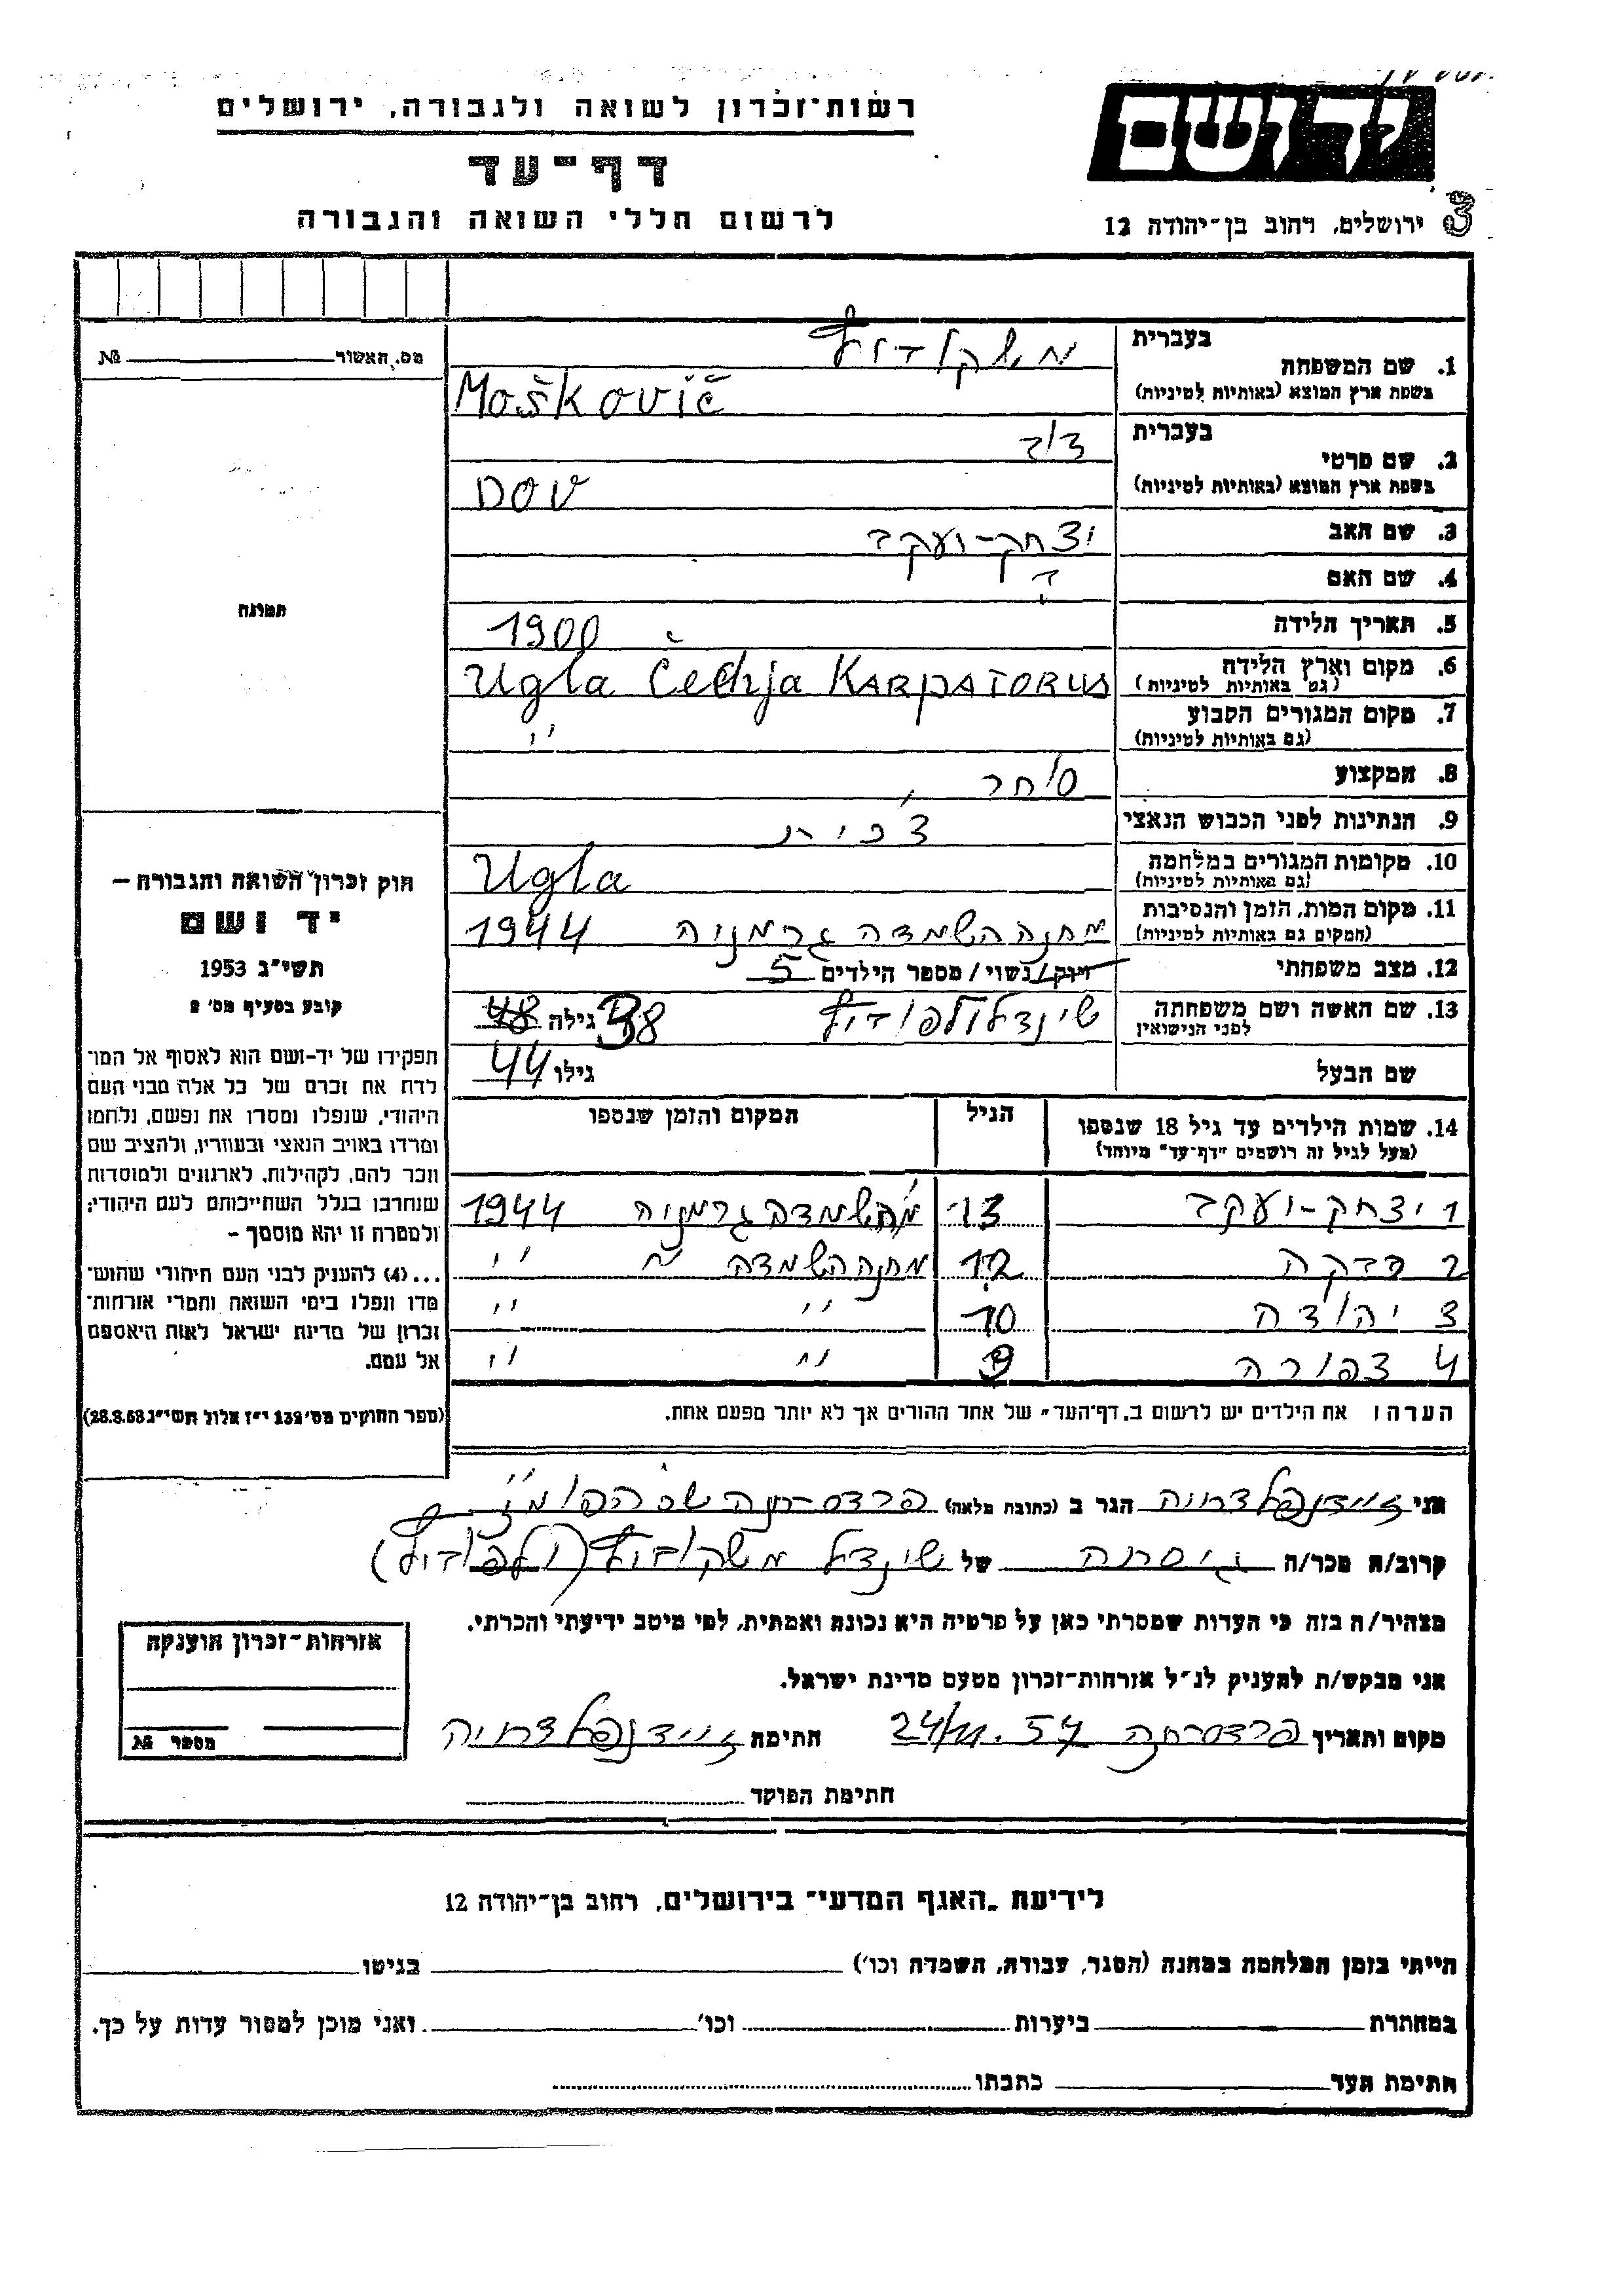 יד ושם
רשות־זכרון לשואה ולגבורה, ירושלים
דף־עד
לרשום חללי השואה והגבורה
ירושלים, רחוב בן־יהודה 12
מס. האשור № 
1. שם המשפחה בעברית
מושקוביץ
בשפת ארץ המוצא (באותיות לטיניות) Moškovič
2. שם פרטי בעברית
דוב
בשפת ארץ המוצא (באותיות לטיניות) DOV
3. שם האב יצחק-יעקב
4. שם האם ?
5. תאריך הלידה 1900
6. מקום וארץ הלידה (גם באותיות לטיניות) Ugla Čechja KARPATORUS
7. מקום המגורים הקבוע (גם באותיות לטיניות) "
8. המקצוע סוחר
9. הנתינות לפני הכבוש הנאצי צ'כית
10. מקומות המגורים במלחמה (גם באותיות לטיניות) Ugla
11. מקום המות, הזמן והנסיבות (המקום גם באותיות לטיניות) מחנה השמדה גרמניה 1944
12. מצב משפחתי רווק/נשוי/מספר הילדים 5
13. שם האשה ושם משפחתה לפני הנישואין שינדל וולפוביץ גילה 38 48
שם הבעל גילו 44
14. שמות הילדים עד גיל 18 שנספו הגיל המקום והזמן שנספו
(מעל לגיל זה רושמים "דף־עד" מיוחד)
1 יצחק-יעקב 13 מ. השמדה גרמניה 1944
2 12 מחנה השמדה " "
3 יהודה 10 " "
4 צפורה 9 " "
הערה: את הילדים יש לרשום ב"דף־העד" של אחד ההורים אך לא יותר מפעם אחת.
תמונה
חוק זכרון השואה והגבורה –
יד ושם
תשי״ג 1953
קובע בסעיף מס׳ 2
תפקידו של יד־ושם הוא לאסוף אל המו־
לדת את זכרם של כל אלה מבני העם
היהודי, שנפלו ומסרו את נפשם, נלחמו
ומרדו באויב הנאצי ובעוזריו, ולהציב שם
וזכר להם, לקהילות, לארגונים ולמוסדות
שנחרבו בגלל השתייכותם לעם היהודי;
ולמטרה זו יהא מוסמך –
...(4) להעניק לבני העם היהודי שהוש־
מדו ונפלו בימי השואה והמרי אזרחות־
זכרון של מדינת ישראל לאות היאספם
אל עמם.
(ספר החוקים מס׳ 132 י״ז אלול תשי״ג 28.8.53)
אני זיידנפלד חיה הגר ב (כתובת מלאה) פרדס-חנה
קרוב/ה מכר/ה גיסתה של שינדל משקוביץ (וולפוביץ)
מצהיר/ה בזה כי העדות שמסרתי כאן על פרטיה היא נכונה ואמתית, לפי מיטב ידיעתי והכרתי.
אני מבקש/ת להעניק לנ״ל אזרחות־זכרון מטעם מדינת ישראל.
מקום ותאריך פרדס-חנה 24/11.57 חתימה זיידנפלד חיה
חתימת הפוקד
אזרחות־זכרון הוענקה
מספר №
לידיעת "האגף המדעי" בירושלים, רחוב בן־יהודה 12
הייתי בזמן המלחמה במחנה (הסגר, עבודה, השמדה וכו׳) בגיטו
במחתרת ביערות וכו׳ ואני מוכן למסור עדות על כך.
חתימת העד כתבתו